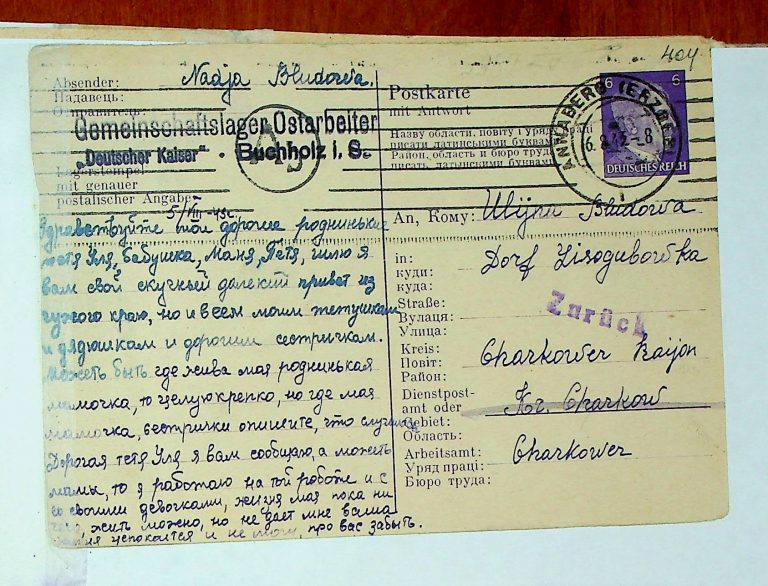 404
Absender: Nadja Bludowa.
Падавець:
Отправитель:
Gemeinschaftslager Ostarbeiter
"Deutscher Kaiser" · Buchholz i. S.
Lagerstempel
mit genauer
postalischer Angabe
Postkarte
mit Antwort
Назву области, повіту і уряд праці
писати латинськими буквами
Район, область и бюро труда
писать латинскими буквами
ANNABERG (ERZGEB)
6 6
DEUTSCHES REICH
5/VIII-43г.
Здравствуйте мои дорогие родненькие
тетя Уля, бабушка, Маня, Петя, шлю я
вам свой скучный далекий привет из
чужого краю, но и всем моим тетушкам
и дядюшкам и дорогим сестричкам.
Может быть где жива мая роднинькая
мамочка, то целую крепко, но где мая
мамочка, сестрички опишите, что случилось
Дорогая тетя Уля я вам сообщаю, а можеть
мамы, то я работаю на той роботе и с
со своими девочками, жизня мая пока ни
чего, жить можно, но не дает мне
успокается и не могу, про вас забыть.
An, Кому: Uljnn Bludowa
in: Dorf Lisogubowka
куди:
куда:
Straße:
Вулаця:
Улица:
Zurück
Kreis: Charkower Raijon
Повіт:
Район:
Dienstpost-
amt oder Kr. Charkow
Gebiet:
Область:
Arbeitsamt: Charkower
Уряд праці:
Бюро труда: